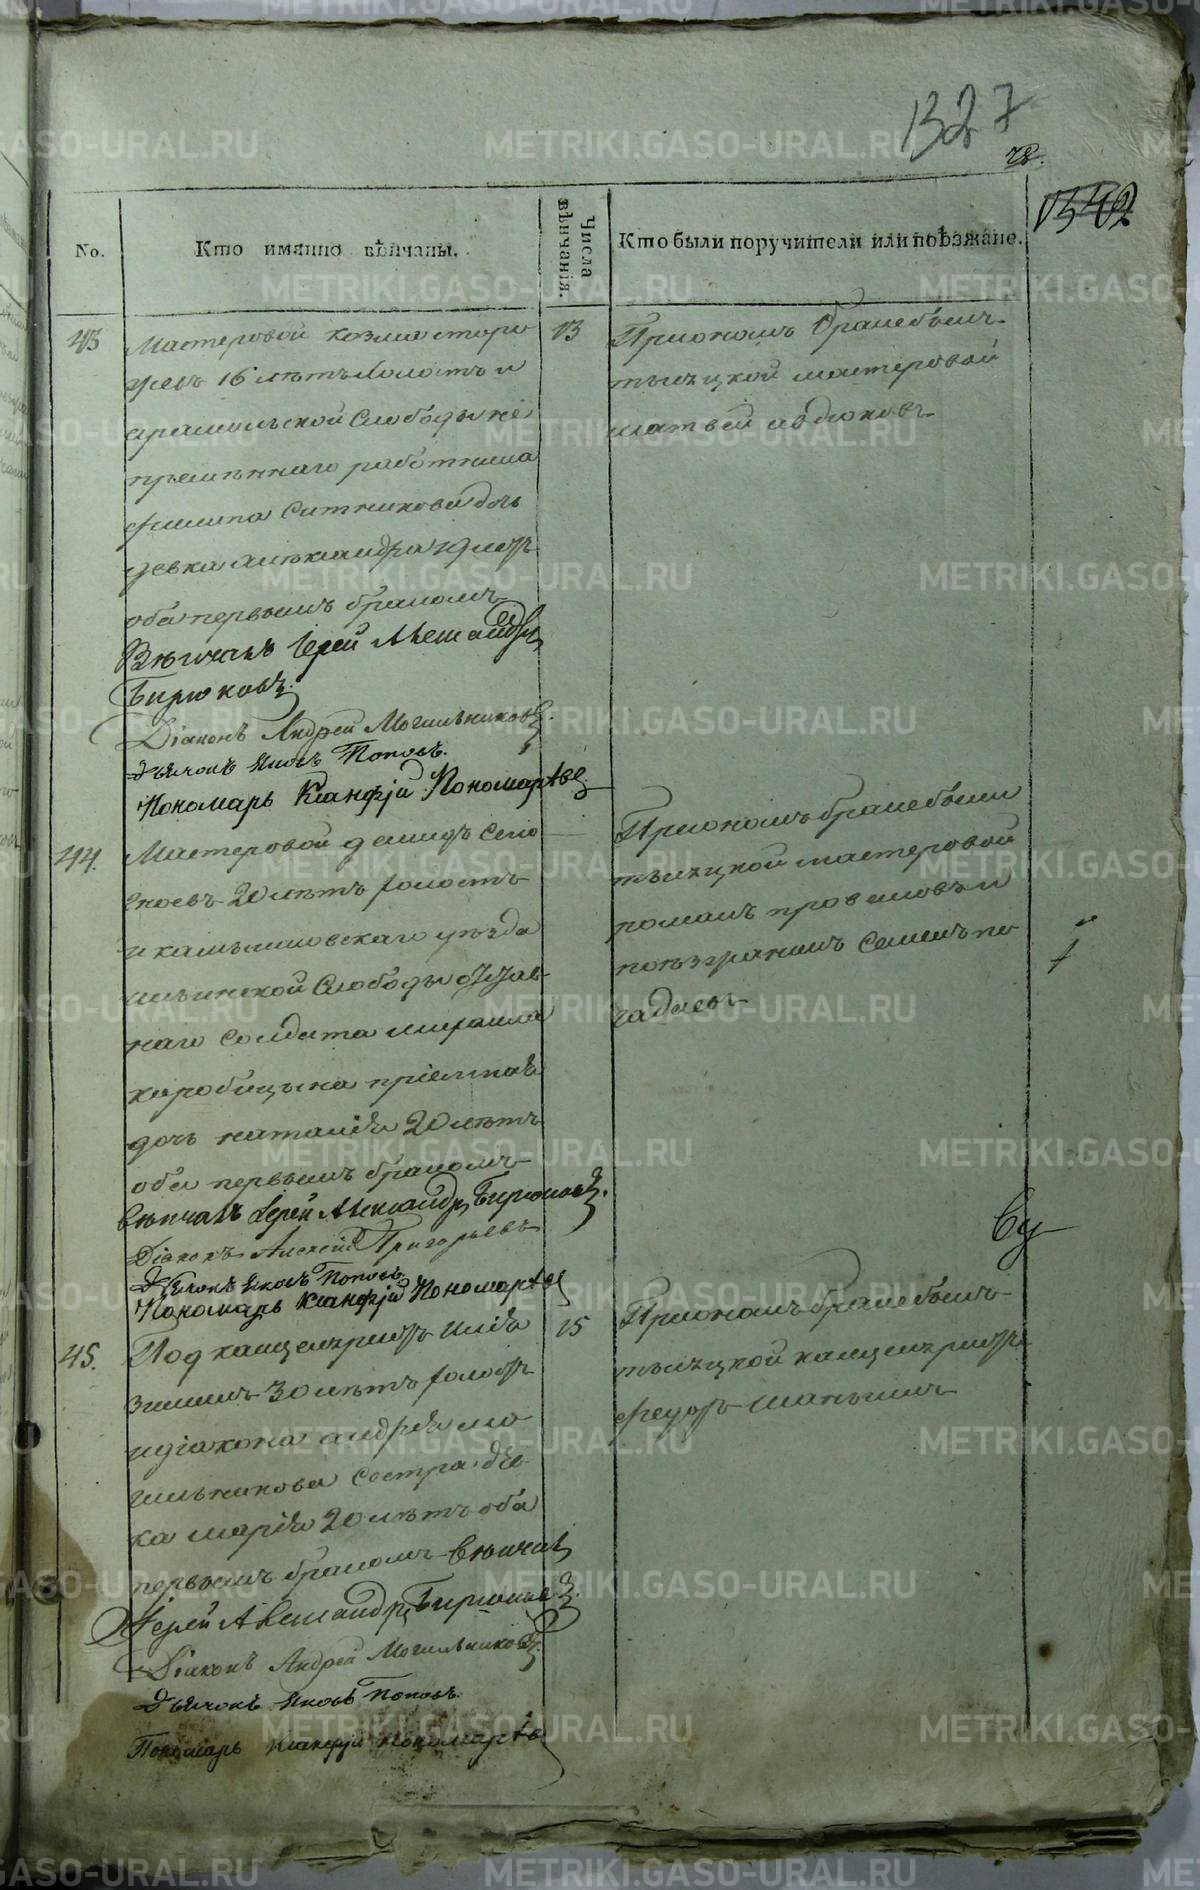 1327
72.
1342
No.
Кто имянно вѣнчаны.
Числа вѣнчанія.
Кто были поручители или поѣзжане.
43
Мастеровой козма сторо
жевъ 16 лѣтъ холостъ и
арамильской Слободы не
премѣннаго работника
филипа Ситникова дочь
девка александра
оба первымъ бракомъ
Вѣнчалъ Іерей Александръ
Бирюковъ.
Діаконъ Андрей Могильниковъ.
Дьячокъ Яковъ Поповъ.
Пономарь Пономаревъ
13
При ономъ браке былъ
мастеровой
матвей авдюковъ
44.
Мастеровой демидъ
20 лѣтъ холостъ
и камышловскаго уѣзда
Слободы отстав-
наго солдата михаила
коробицына пріемная
дочь наталия 20 лѣтъ
оба первымъ бракомъ
вѣнчалъ Іерей Александръ Бирюковъ.
Діаконъ Алексей Григорьевъ
Дьячокъ Яковъ Поповъ
Пономарь Пономаревъ
При ономъ браке были
мастеровой
романъ и
Семенъ по
гадаевъ
45.
Под канцеляристъ илиа
зиминъ 30 лѣтъ холостъ
и діакона андрея мо
гильникова сестра дев
ка мария 20 лѣтъ оба
первымъ бракомъ вѣнчалъ
Іерей Александръ Бирюковъ.
Діаконъ Андрей Могильниковъ.
Дьячокъ Яковъ Поповъ.
Пономарь Пономаревъ
15
При ономъ браке былъ
канцеляристъ
федоръ паньшинъ
METRIKI.GASO-URAL.RU